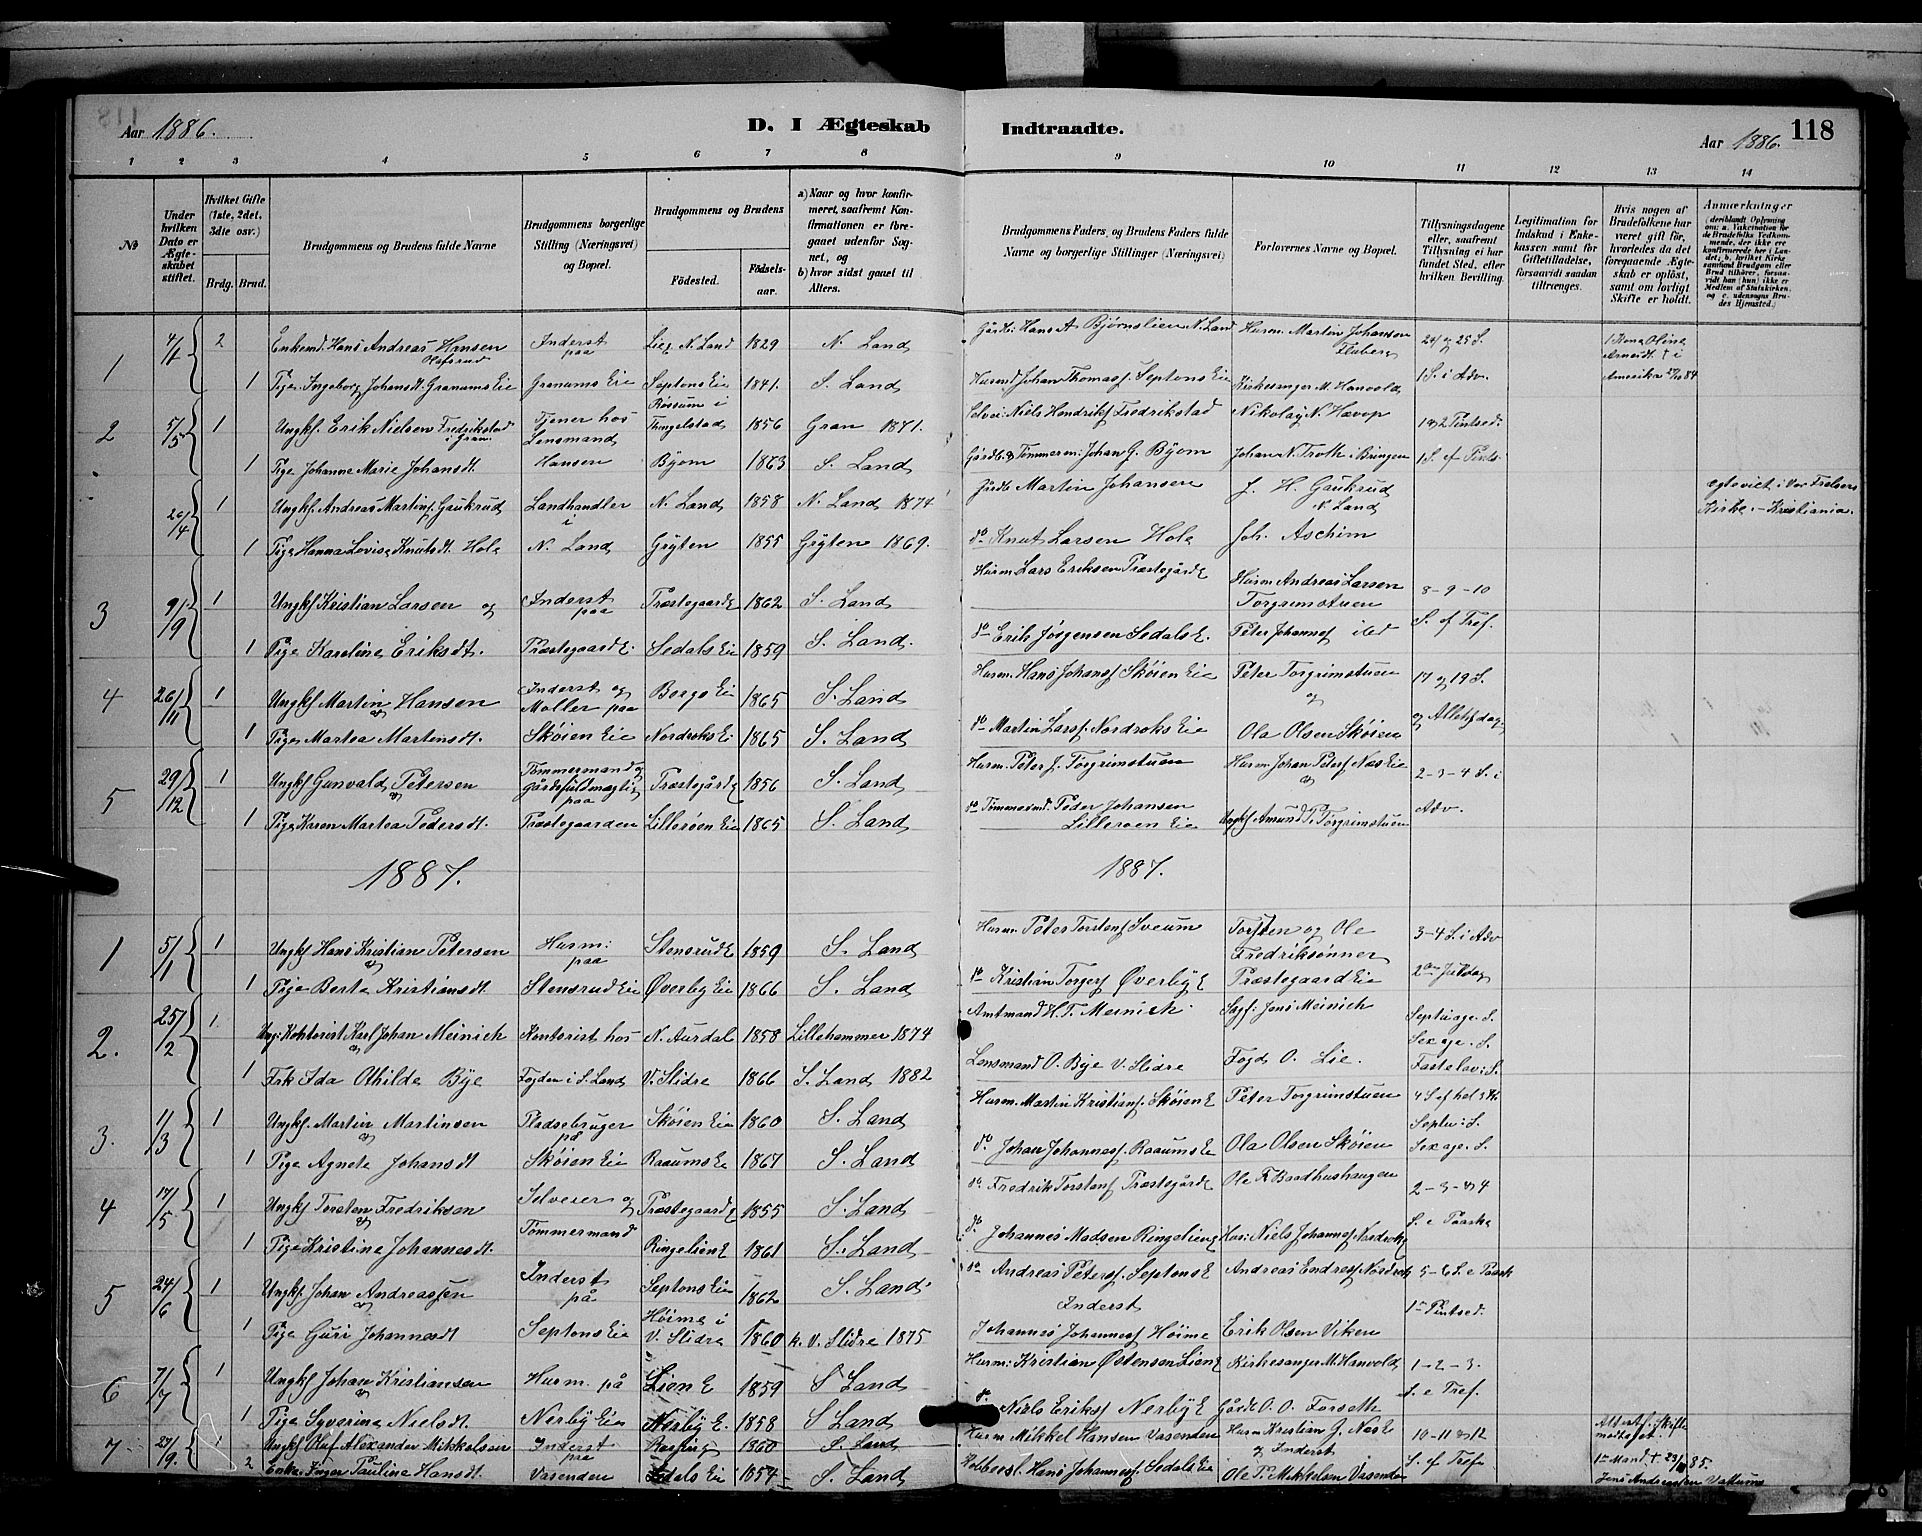 Aar 1886.
D. I Ægteskab
Indtraadte.
Aar 1886.
118
1 2 3 4 5 6 7 8
9 10 11 12 13 14
No
Under hvilken Dato er Ægteskabet stiftet.
Hvilket Gifte (1ste, 2det, 3die osv.)
Brdg. Brud.
Brudgommens og Brudens fulde Navne
Brudgommens borgerlige Stilling (Næringsvei) og Bopæl.
Brudgommens og Brudens
Fødested.
Fødselsaar.
a) Naar og hvor konfirmeret, saafremt Konfirmationen er foregaaet udenfor Sognet, og
b) hvor sidst gaaet til Alters.
Brudgommens Faders, og Brudens Faders fulde Navne og borgerlige Stillinger (Næringsvei)
Forlovernes Navne og Bopæl.
Tillysningsdagene eller, saafremt Tillysning ei har fundet Sted, efter hvilken Bevilling.
Legitimation for Indskud i Enkekassen samt for Giftetilladelse, forsaavidt saadan tiltrænges.
Hvis nogen af Brudefolkene har været gift før, hvorledes da det foregaaende Ægteskab er opløst, samt om lovligt Skifte er holdt.
Anmærkninger
1 4/1 2 Enkemd. Hans Andreas Hansen Olafsrud Inderst paa Lie N. Land 1829 N. Land Gårdb: Hans A Bjørnslien N. Land Husm. Martin Johansen Fluberg 24 og 25 S. 1 Kone Oline Arnesdt † i
1 Pige Ingeborg Johansdt. Granums Eie Granums Eie Septons Eie 1841. S. Land Husmd Johan Thomasf. Septons Eie Kirkesanger M. Hanvold 1 S. i Adv. Amerika 84
2 5/5 1 Ungkf. Erik Nielsen Fredrikstad i Gran Tjener hos Lensmand Røssum i Tingelstad 1856 Gran 1871. Selvei: Niels Hendriksf Fredrikstad Nikolay N. Hævop 1 & 2 Pintsed.
1 Pige Johanne Marie Johansdt. Hansen Byom 1863 S. Land Gårdb. & Tømmerm: Johan G. Byom Johan N. Troth i Bringen 1 S. ef Pints.
20/4 1 Ungkf. Andreas Martinsf. Gaukrud Landhandler i N. Land 1858 N. Land 1874 Gårdb Martin Johansen J. H. Gaukrud N. Land egteviet i Vor Frelsers Kirke - Kristiania.
1 Pige Hanna Lovise Knutsdt. Hole N. Land Gryten 1855 Gryten 1869. do Knut Larsen Hole Joh. Aschim
3 9/9 1 Ungkf Kristian Larsen og Inderst paa Præstegaards E 1862 S. Land Husm. Lars Eriksen Præstegårds E Husm. Andreas Larsen Torgrimstuen 8 - 9 - 10
1 Pige Karoline Eriksdt. Præstegaards Ei. Sedals Eie 1859 S. Land. do Erik Jørgensen Sedals E. Peter Johannesf ibd S. ef Tref.
4 26/11 1 Ungkf Martin Hansen og Inderst og Møller paa Bergs Eie 1865 S. Land Husm. Hans Johansf Skøien Eie Peter Torgrimstuen og 17 og 19 S.
1 Pige Martea Martinsdt. Skøien Eie Nordroks Ei 1865 S. Land do Martin Larsf. Nordroks Eie Ola Olsen Skøien og Allehf.dag
5 29/12 1 Ungkf Gunvald Petersen og Tømmermand og gårdsfuldmægtig paa Præstegårds E 1856 S. Land Husm. Peter J. Torgrimstuen Husm. Johan Petersf Næs Eie og 2 - 3 - 4 S. i
1 Pige Karen Martea Pedersdt. Præstegaarden Lillerøen Eie 1865 S. Land do Tømmermd. Peder Johansen Lillerøen Eie Ungkf Amund P. Torgrimstuen Adv.
1887.
1887.
1 5/1 1 Ungkf Hans Kristian Petersen og Husm: paa Stensruds E 1859 S. Land Husm. Peter Torstensf Sveum Torsten og Ole Fredriksønner 3-4 S. i Adv
1 Pige Berte Kristiansdt. Stensrud Eie Øverby Eie 1866 S. Land do Kristian Torgersf Øverby E Præstegaards Eie 2den Juldag
2. 25/2 1. Ung. Kontorist Karl Johan Meinich og Kontorist hos N. Aurdal 1858 Lillehammer 1874 Amtmand H. T. Meinich. Sagf: Jens Meinich Septuage. S.
Sexage. S.
1 Frk Ida Othilde Bye Fogden i S. Land V. Slidre 1866 S. Land 1882 Lensmand O. Bye V. Slidre Fogd O. Lie. Fastelav: S.
3. 11/3 1 Ungkf. Martin Martinsen og Pladsebruger på Skøien Eie 1860 S. Land Husm. Martin Kristiansf. Skøien E Peter Torgrimstuen 4 S. ef hel 3 K
Septu: S.
1 Pige Agnete Johansdt Skøien Eie Raaums Eie 1867 S. Land do Johan Johannesf. Raaums Eie Ola Olsen Skøien Sexage. S.
4 17/5 1 Ungkf Torsten Fredriksen og Selveier og Præstegaards E 1855 S. Land do Fredrik Torstensf Præstegårds E Ole F. Baadhushaugen 2 - 3 - & 4
1 Pige Kristine Johannesdt. Tømmermand Ringelien E 1861 S. Land do Johannes Madsen Ringelien E Hus: Niels Johannesf Nordrok E S. e Paaske
5 24/6 1 Ungkf. Johan Andreassen og Inderst på Septons Eie 1862 S. Land do Andreas Petersf. Septons E Inderst Andreas Endresf Nordrok 5 - 6 S. e Paask
1 Pige Guri Johannesdt Septons Eie Høime i V. Slidre 1860 k. V. Slidre 1875 Johannes Johannesf Høime Erik Olsen Viken 1ste Pintsed.
6 7/7 1 Ungkf Johan Kristiansen og Husm. på Lien E 1859 S Land Husm: Kristian Østensen Lien E Kirkesanger M. Hanvold 1 - 2 - 3.
1 Pige Syverine Nielsdt. Nerby Eie Nerby E. 1858 S Land do Niels Eriksf Nerby E Gårdb O. O. Forseth S. e Tref.
7 23/9. 1 Ungkf Oluf Alexander Mikkelsen Inderst paa 1860 S. Land Husm Mikkel Hansen Vasenden Husm Kristian G. Næs E og Inderst 10-11 & 12
2 Enke Inger Pauline Hansdt. Vasenden Sedals Eie 1854 S. Land Hans Johannesf. Sedals Eie Ole P. Mikkelsen Vasenden S. ef Tref 1ste Mand † 85.
Jens Andreassen